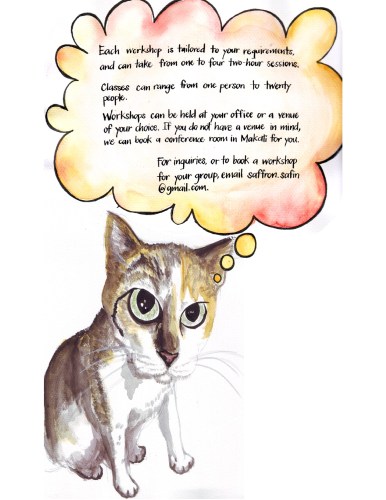 Each workshop is tailored to your requirements,
and can take from one to four two-hour sessions.
Classes can range from one person to twenty
people.
Workshops can be held at your office or a venue
of your choice. If you do not have a venue in mind,
we can book a conference room in Makati for you.
For inquiries, or to book a workshop
for your group, email saffron.safin
@gmail.com.